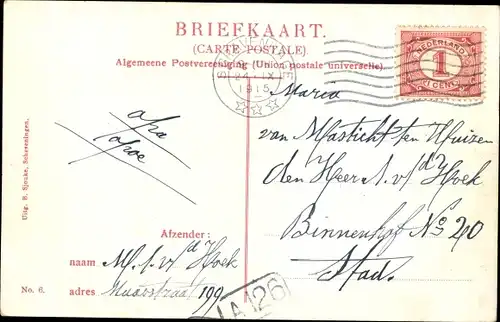 BRIEFKAART.
(CARTE POSTALE)
Algemeene Postvereeniging (Union postale universelle).
24 IX
1915
NEDERLAND
1
CENT
Maria
van Masticht ten Huizen
den Heer A. v/d Hoek
Binnenhof No 20
Stad.
opa
opoe
Uitg. B. Sjouke, Scheveningen.
Afzender:
naam M. A. v/d Hoek
No. 6. adres 199
A 126